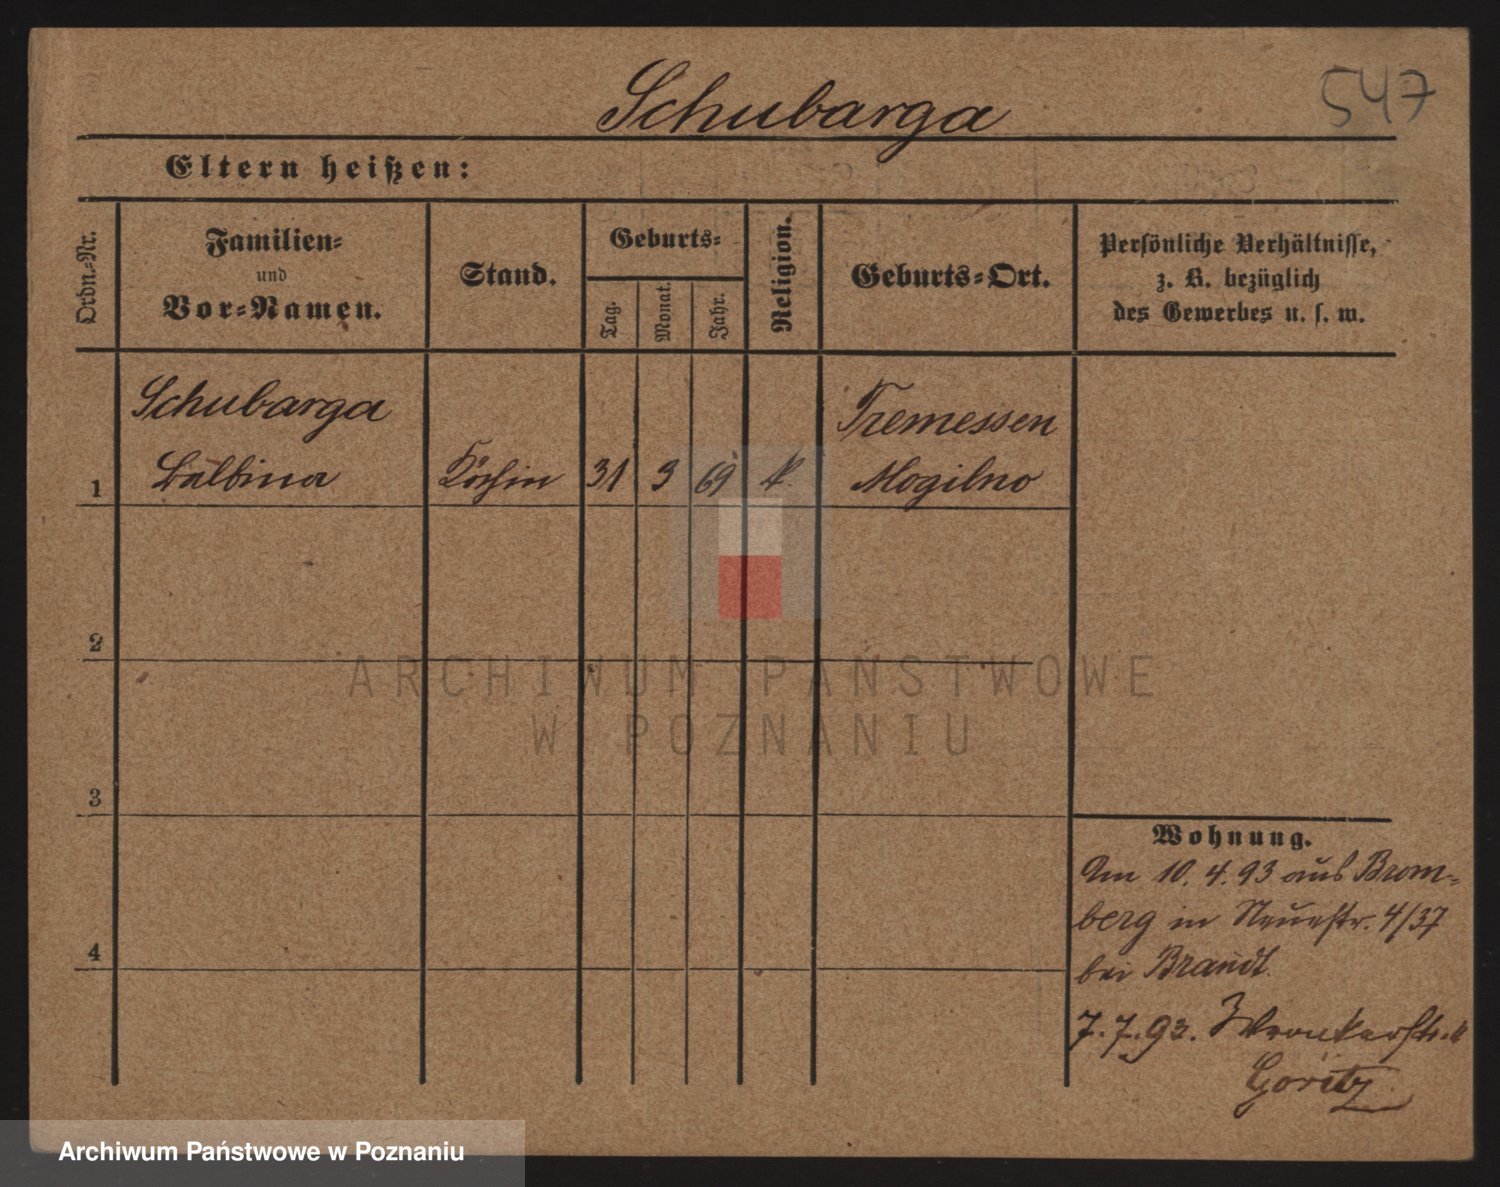 Schubarga
547
Eltern heißen:
Ordn.-Nr.
Familien-
und
Vor-Namen.
Stand.
Geburts-
Tag.
Monat.
Jahr.
Religion.
Geburts-Ort.
Persönliche Verhältnisse,
z. B. bezüglich
des Gewerbes u. s. w.
Schubarga
Tremessen
1 Balbina Köchin 31 3 69 k. Mogilno
2
3
4
Wohnung.
Am 10. 4. 93 aus Brom-
berg in Neuestr. 4/37
bei Brandt.
7. 7. 93. Wronkerstr.
Goritz
ARCHIWUM PAŃSTWOWE
W POZNANIU
Archiwum Państwowe w Poznaniu